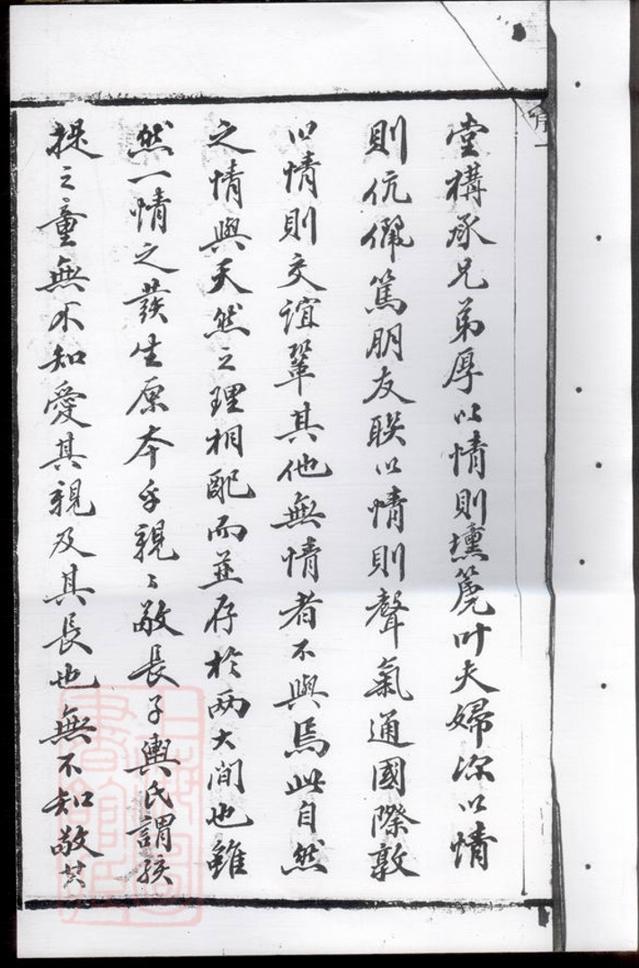 堂構承兄弟厚以情則壎篪叶夫婦深以情
則伉儷篤朋友联以情則聲氣通國際敦
以情則交誼鞏其他無情者不與焉此自然
之情與天然之理相配而並存於两大间也雖
然一情之發生原本乎親〻敬長子輿氏謂孩
提之童無不知愛其親及其長也無不知敬其